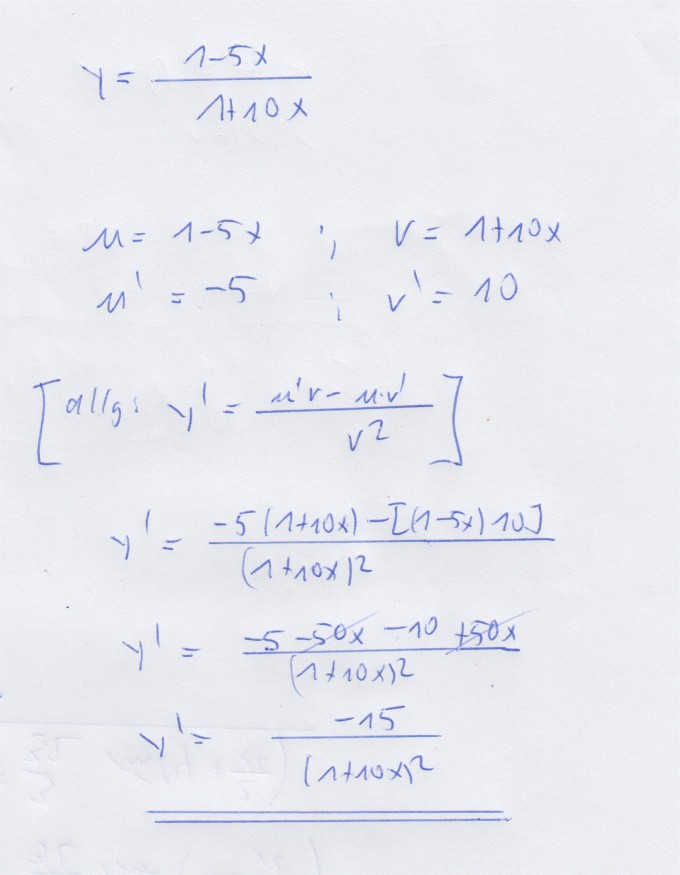 y = (1-5x)/(1+10x)
u = 1-5x ; v = 1+10x
u' = -5 ; v' = 10
[allg: y' = (u'v - u·v')/v²]
y' = (-5(1+10x) - [(1-5x)10])/(1+10x)²
y' = (-5 -50x -10 +50x)/(1+10x)²
y' = -15/(1+10x)²